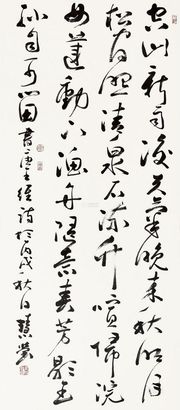 空山新雨後天氣晚來秋明月
松間照清泉石上流竹喧歸浣
女蓮動下漁舟隨意春芳歇王
孫自可留
書唐王維詩於丙戌秋日